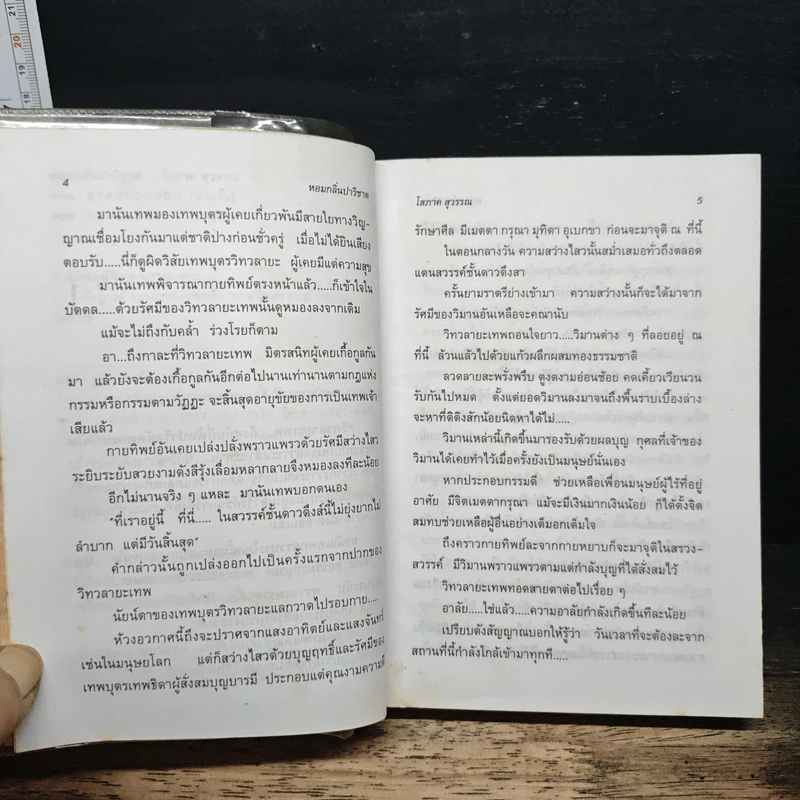 21
20
4
หอมกลิ่นปาริชาต
มานันเทพมองเทพบุตรผู้เคยเกี่ยวพันมีสายใยทางวิญ-
ญาณเชื่อมโยงกันมาแต่ชาติปางก่อนชั่วครู่ เมื่อไม่ได้ยินเสียง
ตอบรับ.....นี่ก็ดูผิดวิสัยเทพบุตรวิทวลายะ ผู้เคยมีแต่ความสุข
มานันเทพพิจารณากายทิพย์ตรงหน้าแล้ว.....ก็เข้าใจใน
บัดดล.....ด้วยรัศมีของวิทวลายะเทพนั้นดูหมองลงจากเดิม
แม้จะไม่ถึงกับคล้ำ ร่วงโรยก็ตาม
อา...ถึงกาละที่วิทวลายะเทพ มิตรสนิทผู้เคยเกื้อกูลกัน
มา แล้วยังจะต้องเกื้อกูลกันอีกต่อไปนานเท่านานตามกฎแห่ง
กรรมหรือกรรมตามวัฏฏะ จะสิ้นสุดอายุขัยของการเป็นเทพเจ้า
เสียแล้ว
กายทิพย์อันเคยเปล่งปลั่งพราวแพรวด้วยรัศมีสว่างไสว
ระยิบระยับสวยงามดังสีรุ้งเลื่อมหลากลายจึงหมองลงทีละน้อย
อีกไม่นานจริง ๆ แหละ มานันเทพบอกตนเอง
"ที่เราอยู่นี้ ที่นี่..... ในสวรรค์ชั้นดาวดึงส์นี้ไม่ยุ่งยากไม่
ลำบาก แต่มีวันสิ้นสุด"
คำกล่าวนั้นถูกเปล่งออกไปเป็นครั้งแรกจากปากของ
วิทวลายะเทพ
นัยน์ตาของเทพบุตรวิทวลายะแลกวาดไปรอบกาย.....
ห้วงอวกาศนี้ถึงจะปราศจากแสงอาทิตย์และแสงจันทร์
เช่นในมนุษยโลก แต่ก็สว่างไสวด้วยบุญฤทธิ์และรัศมีของ
เทพบุตรเทพธิดาผู้สั่งสมบุญบารมี ประกอบแต่คุณงามความดี
โสภาค สุวรรณ
5
รักษาศีล มีเมตตา กรุณา มุทิตา อุเบกขา ก่อนจะมาจุติ ณ ที่นี้
ในตอนกลางวัน ความสว่างไสวนั้นสม่ำเสมอทั่วถึงตลอด
แดนสวรรค์ชั้นดาวดึงสา
ครั้นยามราตรีย่างเข้ามา ความสว่างนั้นก็จะได้มาจาก
รัศมีของวิมานอันเหลือจะคณานับ
วิทวลายะเทพถอนใจยาว.....วิมานต่าง ๆ ที่ลอยอยู่ ณ
ที่นี้ ล้วนแล้วไปด้วยแก้วผลึกผสมทองธรรมชาติ
ลวดลายสะพรั่งพรึบ ดูงดงามอ่อนช้อย คดเคี้ยวเวียนวน
รับกันไปหมด ตั้งแต่ยอดวิมานลงมาจนถึงพื้นราบเบื้องล่าง
จะหาที่ติติงสักน้อยนิดหาได้ไม่.....
วิมานเหล่านี้เกิดขึ้นมารองรับด้วยผลบุญ กุศลที่เจ้าของ
วิมานได้เคยทำไว้เมื่อครั้งยังเป็นมนุษย์นั่นเอง
หากประกอบกรรมดี ช่วยเหลือเพื่อนมนุษย์ผู้ไร้ที่อยู่
อาศัย มีจิตเมตตากรุณา แม้จะมีเงินมากเงินน้อย ก็ได้ตั้งจิต
สมทบช่วยเหลือผู้อื่นอย่างเต็มอกเต็มใจ
ถึงคราวกายทิพย์ละจากกายหยาบก็จะมาจุติในสรวง-
สวรรค์ มีวิมานพราวแพรวตามแต่กำลังบุญที่ได้สั่งสมไว้
วิทวลายะเทพทอดสายตาต่อไปเรื่อย ๆ
อาลัย.....ใช่แล้ว.....ความอาลัยกำลังเกิดขึ้นทีละน้อย
เปรียบดังสัญญาณบอกให้รู้ว่า วันเวลาที่จะต้องละจาก
สถานที่นี้กำลังใกล้เข้ามาทุกที.....